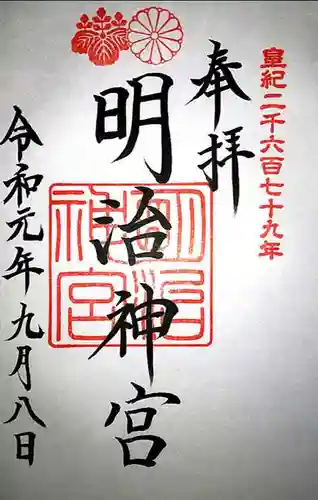 皇紀二千六百七十九年
奉拝
明治神宮
明治
神宮
令和元年九月八日